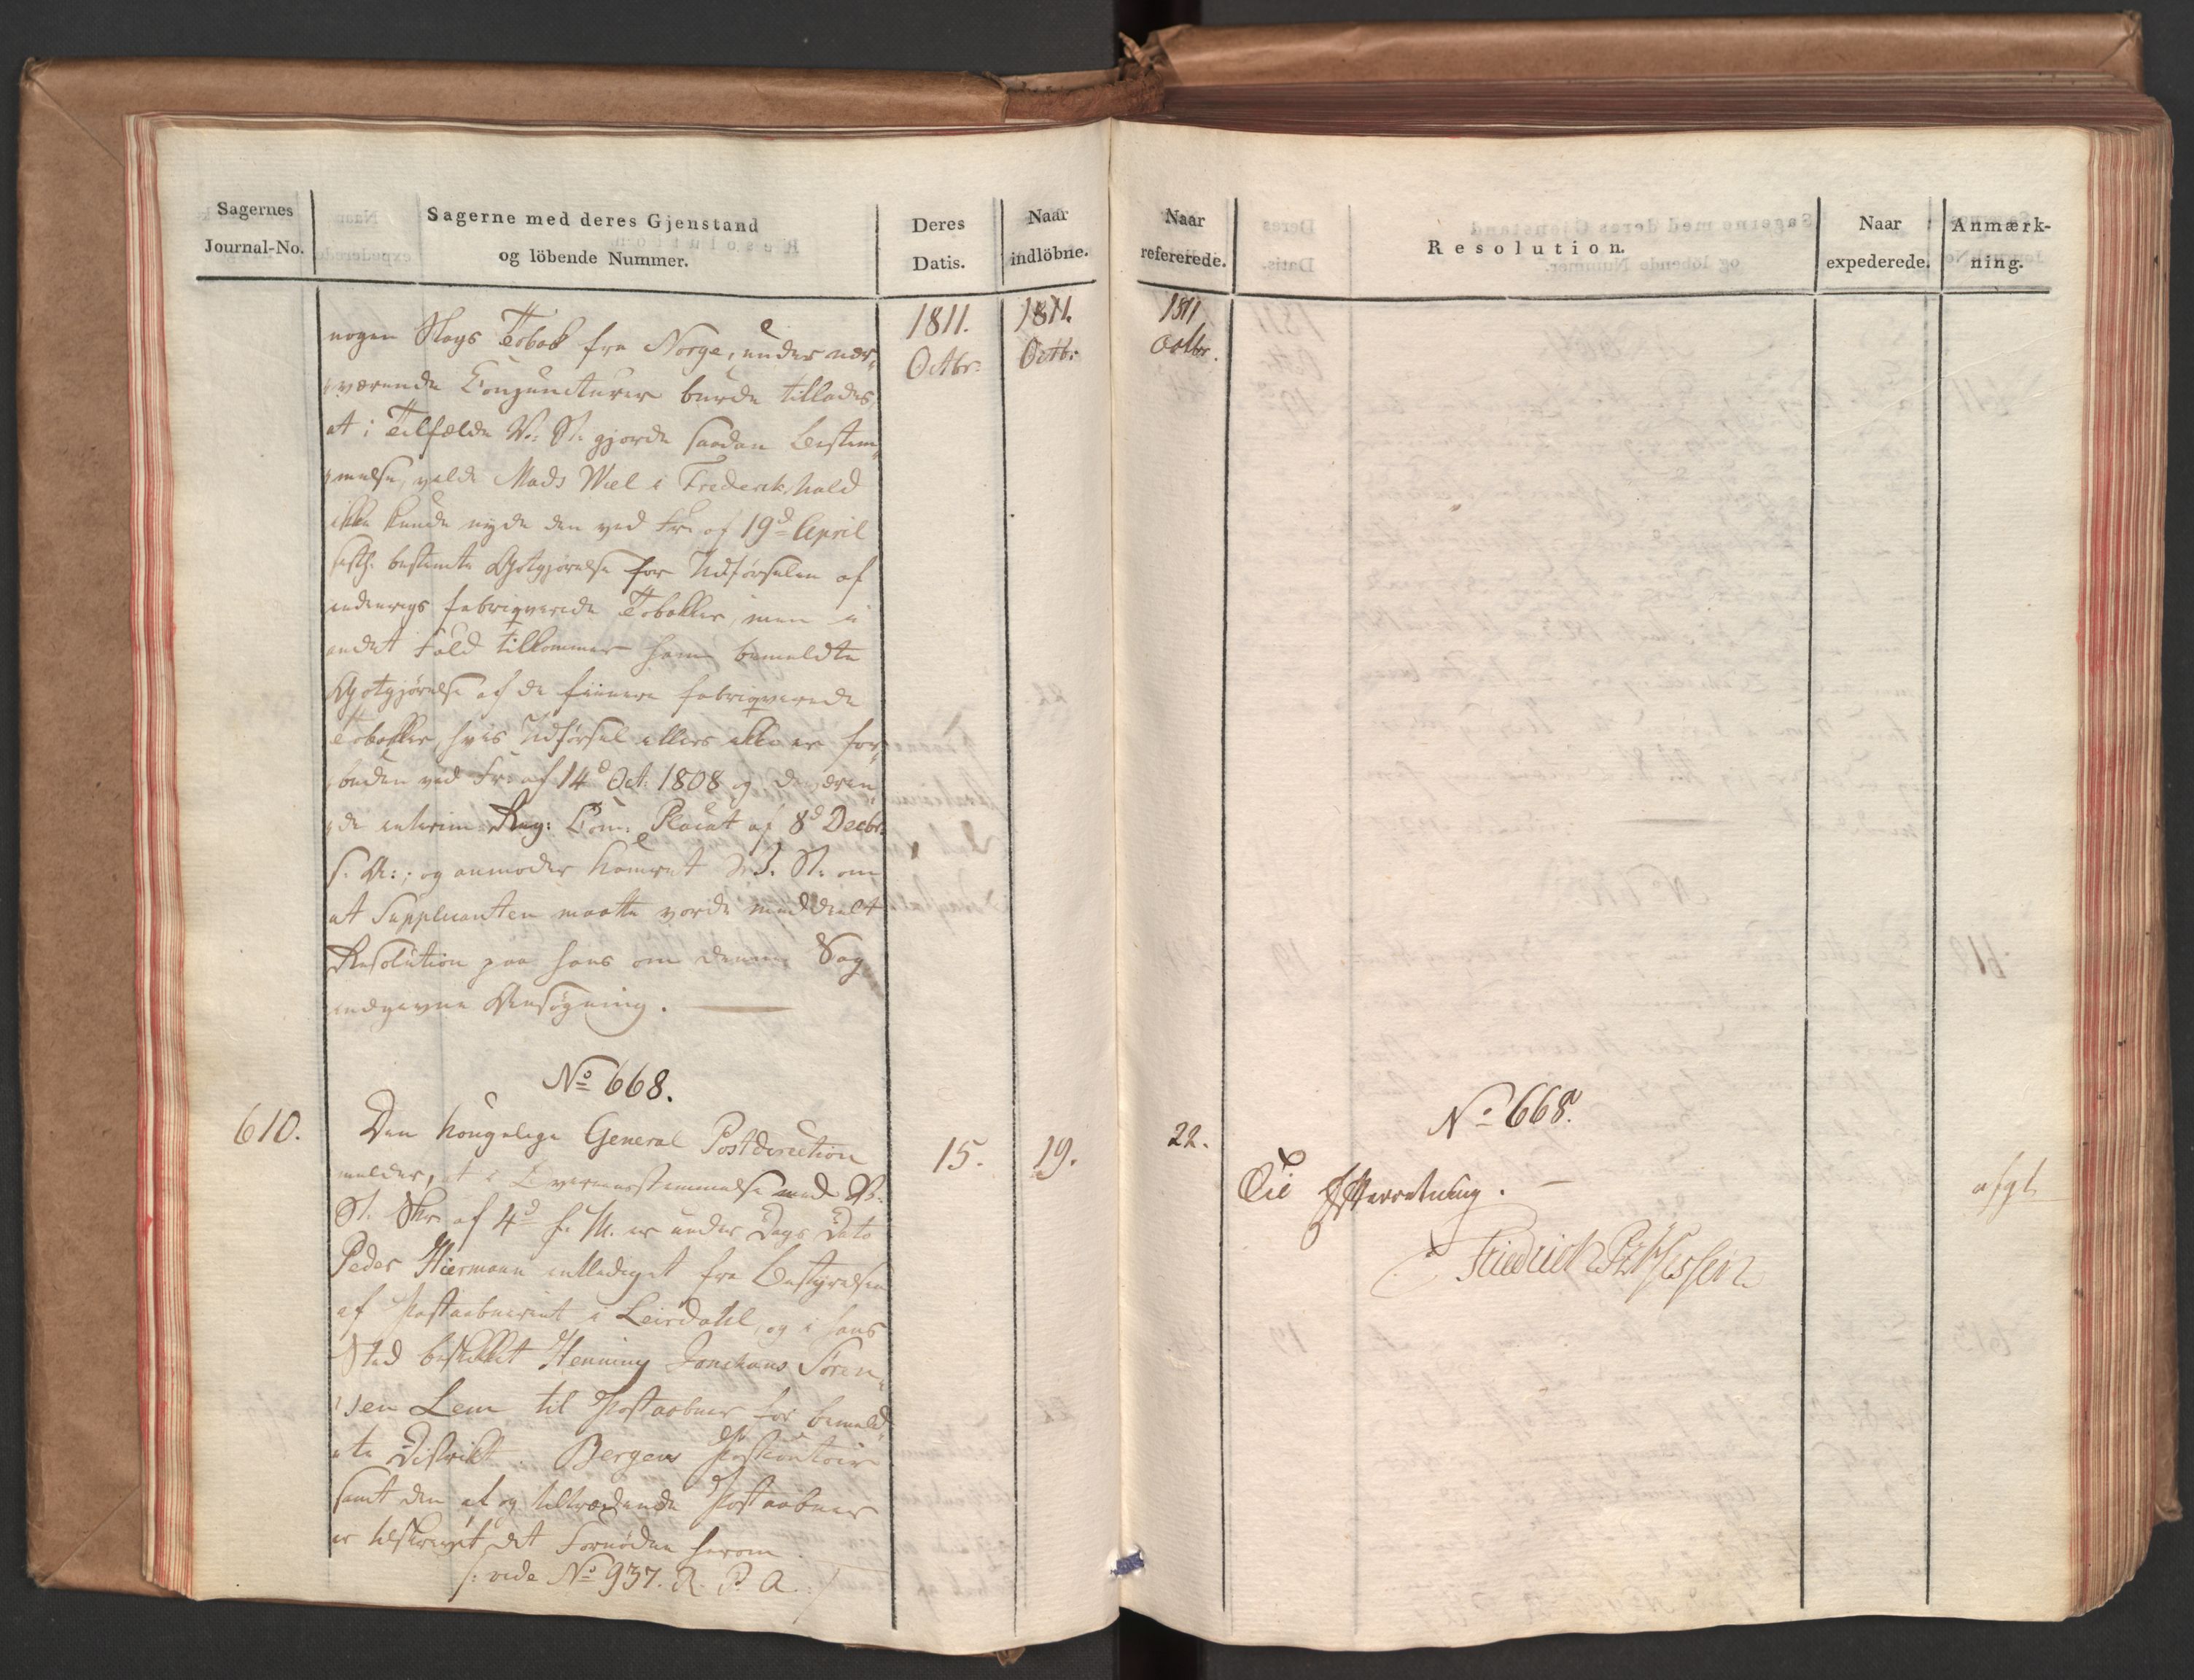 Sagernes
Journal-No.
Sagerne med deres Gjenstand
og löbende Nummer.
Deres
Datis.
Naar
indlöbne.
Naar
refererede.
Resolution.
Naar
expederede.
Anmærk-
ning.
1811.
Octbr:
1811.
Octbr:
1811
Octbr.
nogen Slags Tobak fra Norge, under nær„
„værende Conjuncturer burde tillades,
at i Tilfælde V: St. gjorde saadan Bestem„
„melse, vilde Mads Wiel i Frederikshald
ikke kunde nyde den ved Fr. af 19d April
bestemte Godtgjørelse for Udførselen af
indenrigs fabriqverede Tobakker, men i
andet Fald tilkommer ham bemeldte
Godtgjørelse af de finere fabriqverede
Tobakker, hvis Udførsel ellers ikke er for„
„buden ved Fr. af 14d Oct. 1808 og den
interims Reg: Com: Placat af 8d Decbr:
s. A.; og anmoder Kamret St. om
at Supplicanten maatte vorde meddeelt
Resolution paa hans om denne Sag
indgivne Ansøgning. —
No 668.
610.
Den kongelige General Postdirection
melder, at i Overeensstemmelse med V:
St. Skr. af 4d f. M. er under Dags Dato
Peder Hiermann entlediget fra Bestyrelsen
af Postaabneriet i Leirdahl, og i hans
Sted beskikket Henning Sören„
„sen Lem til Postaabner for bemeld„
„te District. Bergens Postcontoir
samt den af og tiltrædende Postaabner
er tilskrevet det Fornødne herom
/: vide No 937. R. P. A. :/
15.
19.
22.
No 668.
Til Efterretning. —
Friedrich Pz z Hessen
afgl.